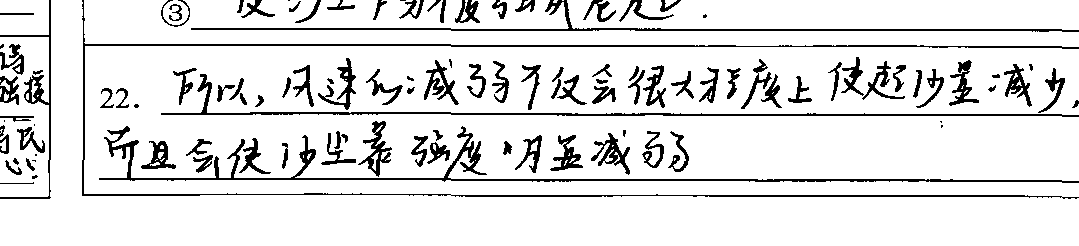 ③
22. 所以,风速的减弱不仅会很大程度上使起沙量减少,
而且会使沙尘暴强度明显减弱